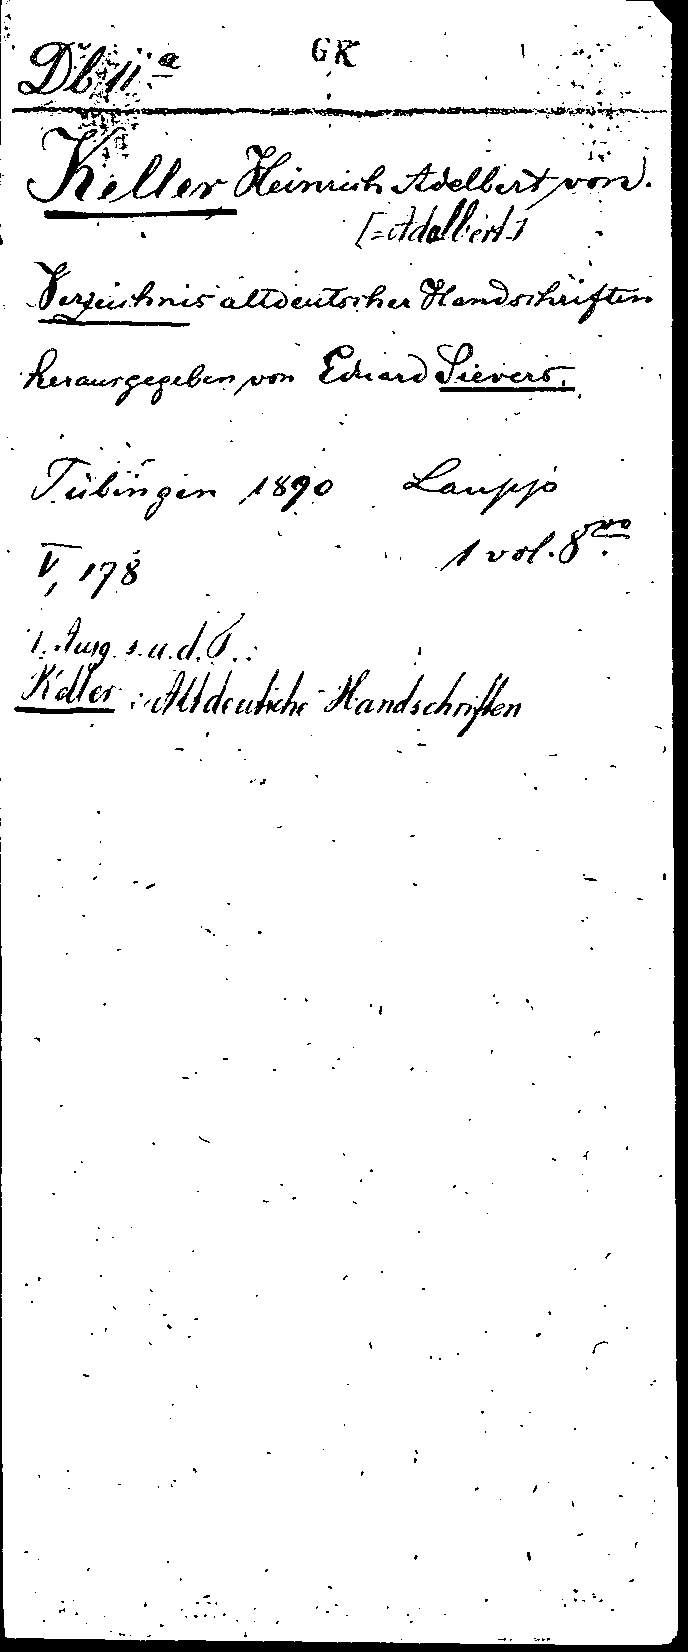 GK
Db 11 a
Keller Heinrich Adelbert von.
[= Adalbert]
Verzeichnis altdeutscher Handschriften
herausgegeben von Eduard Sievers.
Tübingen 1890 Laupp
1 vol. 8vo.
V, 178
1. Ausg. s. u. d. T.:
Keller: Altdeutsche Handschriften